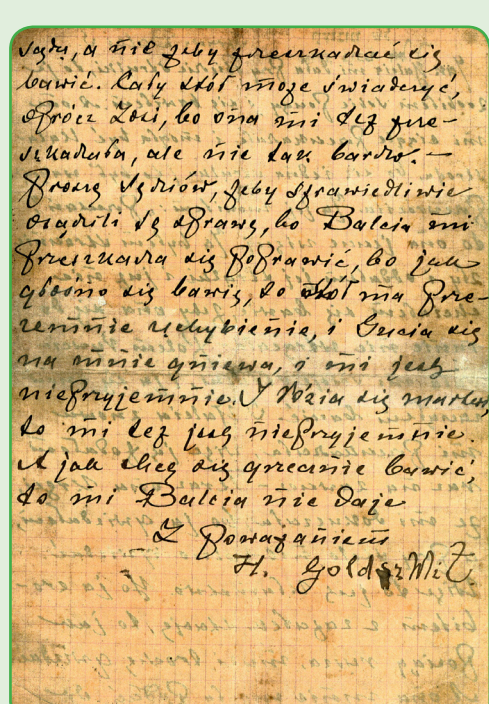 sądu, a nie żeby przeszkadzać się
bawić. Cały stół może świadczyć,
oprócz Zosi, bo ona mi też prze-
szkadzała, ale nie tak bardzo. —
Proszę sędziów, żeby sprawiedliwie
osądzili tę sprawę, bo Balcia mi
przeszkadza się poprawić, bo jak
głośno się bawię, to stół ma prze-
zemnie uchybienie, i Gucia się
na mnie gniewa, i mi jest
nieprzyjemnie. I Rózia się martwi,
to mi też jest nieprzyjemnie.
A jak chcę się grzecznie bawić,
to mi Balcia nie daje
Z poważaniem
H. Goldszmit.